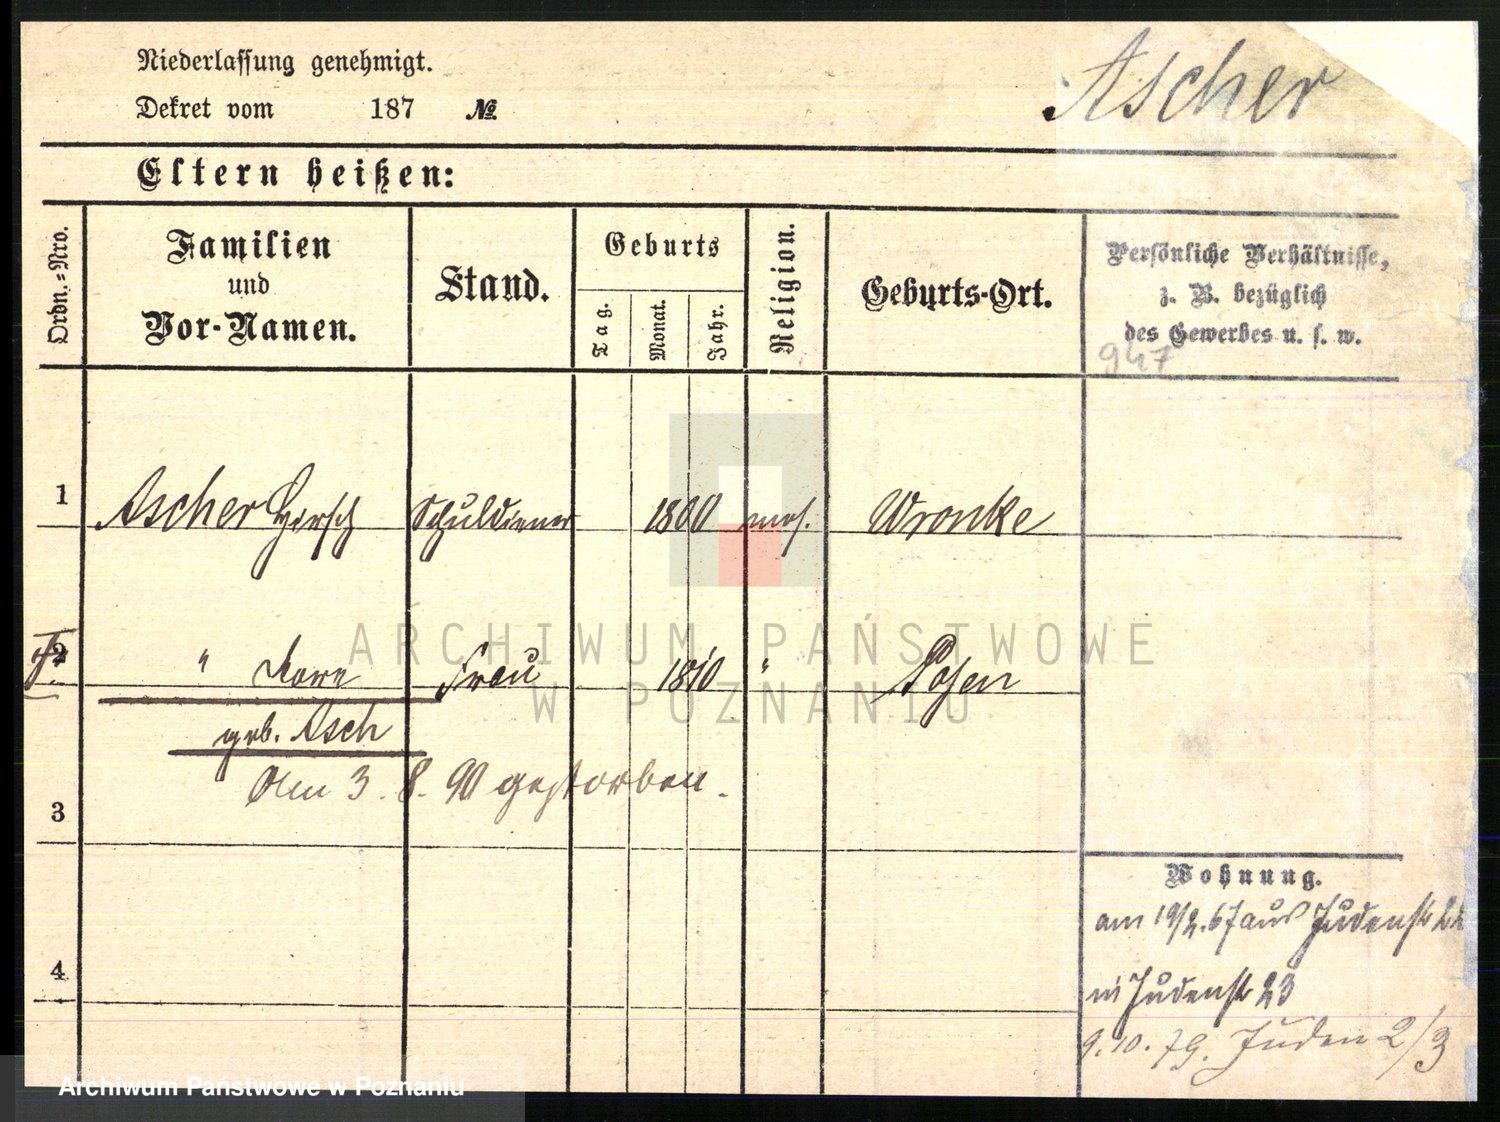 Niederlassung genehmigt.
Dekret vom 187 №
Ascher
Eltern heißen:
Ordn.=Nro.
Familien
und
Vor-Namen.
Stand.
Geburts
Tag.
Monat.
Jahr.
Religion.
Geburts-Ort.
Persönliche Verhältnisse,
z. B. bezüglich
des Gewerbes u. s. w.
947
1 Ascher Hirsch Schuldiener 1800 mos. Wronke
2 " Frau 1810 " Posen
geb. Asch
Am 3. 8. 90 gestorben.
3
4
Wohnung.
am 19/2. 67 aus Judenstr 22
in Judenstr 23
9. 10. 79. Juden 2/3
ARCHIWUM PAŃSTWOWE
W POZNANIU
Archiwum Państwowe w Poznaniu